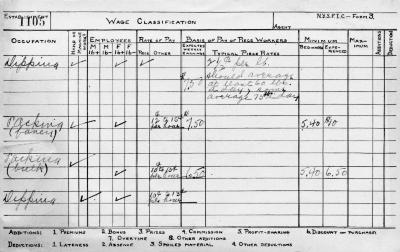 ESTABLISHMENT 1103
WAGE CLASSIFICATION
AGENT
N.Y.S.F.I.C.—FORM 3.
OCCUPATION
EMPLOYEES
M M F F
16+ 16+
RATE OF PAY
PIECE OTHER
BASIS OF PAY OF PIECE WORKERS
EXPECTED WEEKLY EARNINGS
TYPICAL PIECE RATES
MINIMUM
BEGINNERS EXPERIENCED
MAXIMUM
ADDITIONS
DEDUCTIONS
Dipping
7.50
per lb.
should average
at least 60 lbs.
a day; some
average 75 a day
Packing
(fancy)
per hour
7.50
5.40
Packing
(bulk)
per hour
6.50
5.40 6.50
Dipping
per hour
ADDITIONS: 1. PREMIUMS 2. BONUS 3. PRIZES 4. COMMISSION 5. PROFIT-SHARING 6. DISCOUNT ON PURCHASES
7. OVERTIME 8. OTHER ADDITIONS
DEDUCTIONS: 1. LATENESS 2. ABSENCE 3. SPOILED MATERIAL 4. OTHER DEDUCTIONS